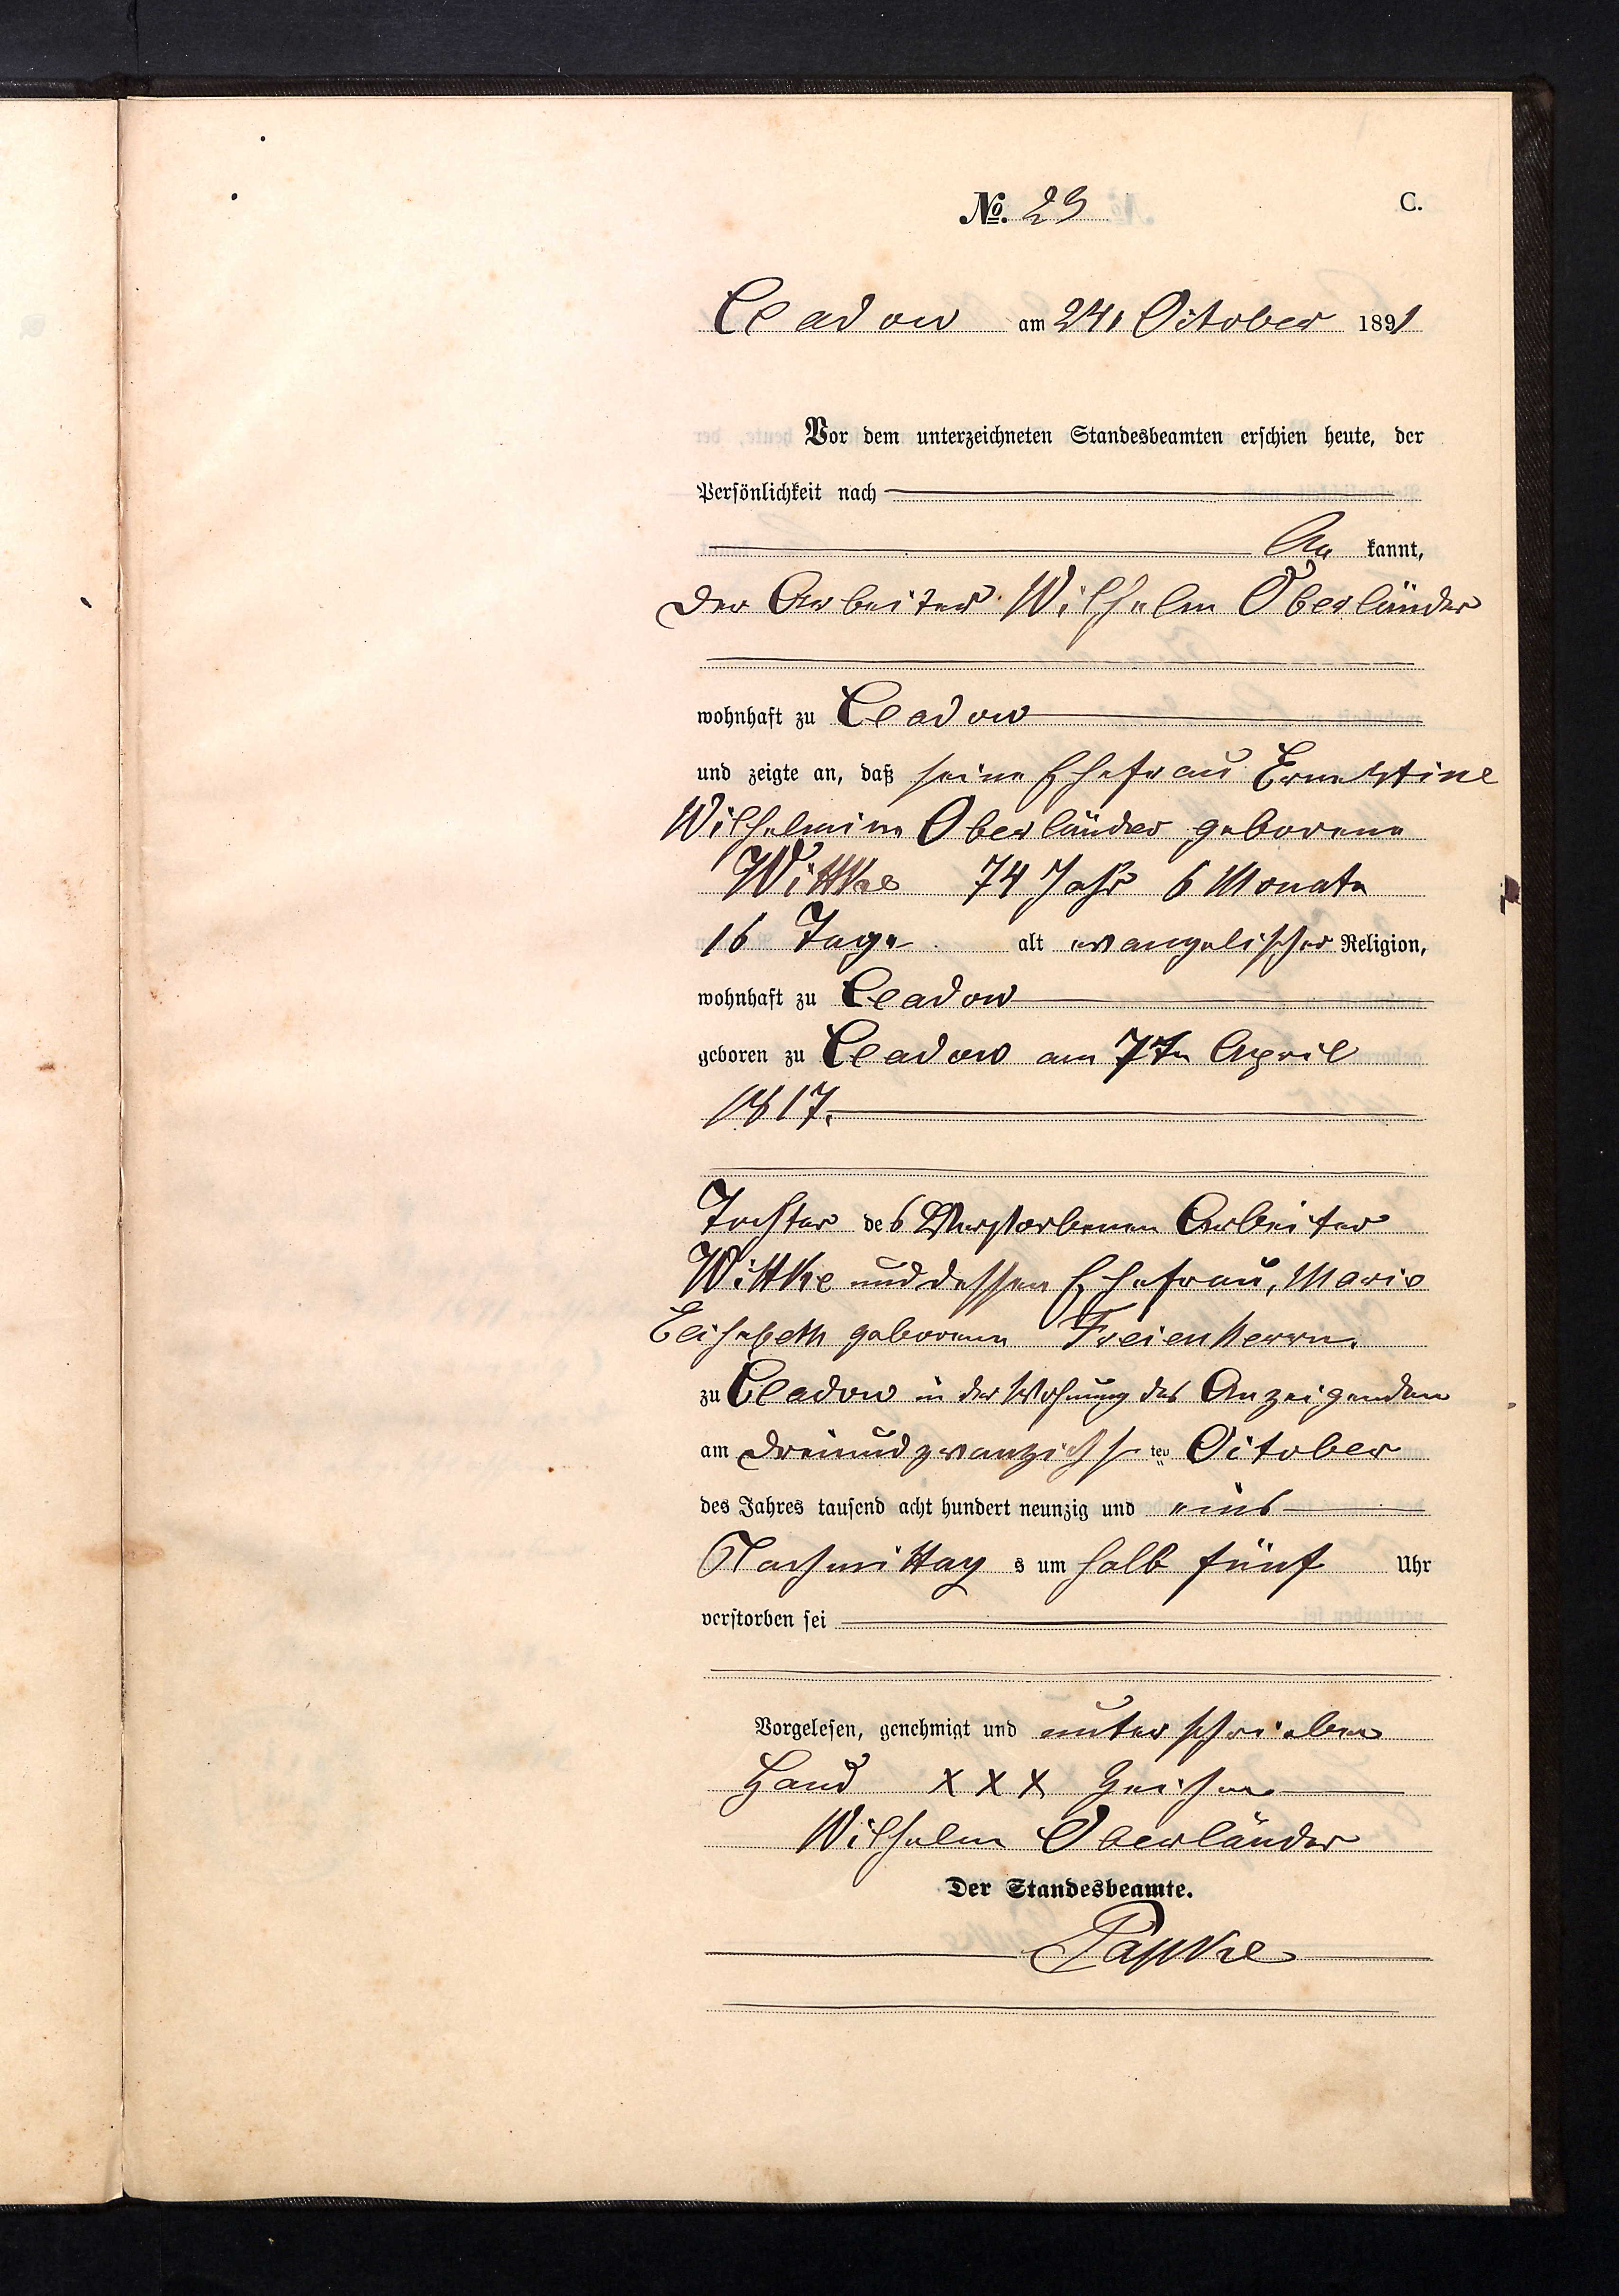 No. 29
C.
Cladow am 24. October 1891
Vor dem unterzeichneten Standesbeamten erschien heute, der
Persönlichkeit nach
kannt,
der Arbeiter Wilhelm Oberländer
wohnhaft zu Cladow
und zeigte an, daß seine Ehefrau Ernestine
Wilhelmine Oberländer geborene
Wittke 74 Jahr 6 Monate
16 Tage alt evangelischer Religion,
wohnhaft zu Cladow
geboren zu Cladow am 7tn April
1817.
Tochter des Verstorbenen Arbeiter
Wittke und dessen Ehefrau, Marie
Elisabeth geborenen Freienherrn.
zu Cladow in der Wohnung des Anzeigenden
am dreiundzwanzichsten October
des Jahres tausend acht hundert neunzig und eins
Nachmittags um halb fünf Uhr
verstorben sei
Vorgelesen, genehmigt und unterschrieben
Hand X X X Zeichen
Wilhelm Oberländer
Der Standesbeamte.